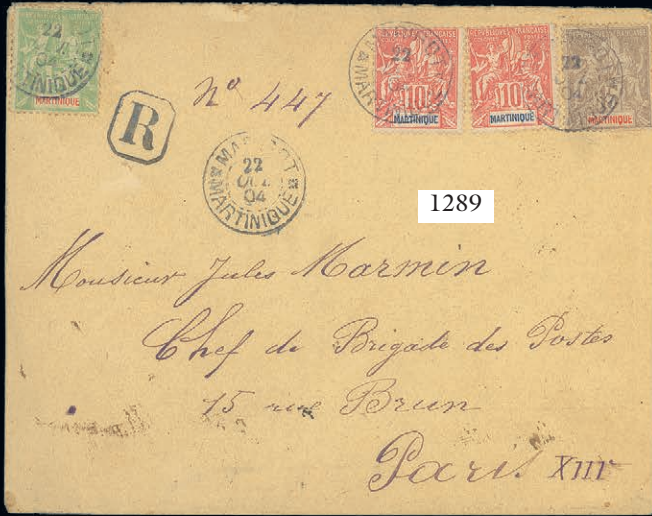 22
04
MARTINIQUE
MARTINIQUE
R
Nº 447
RÉPUBLIQUE FRANÇAISE
10
MARTINIQUE
10
MARTINIQUE
MARTINIQUE
22
04
MARTINIQUE
1289
Monsieur Jules Marmin
Chef de Brigade des Postes
15 rue Brun
Paris XIIIe